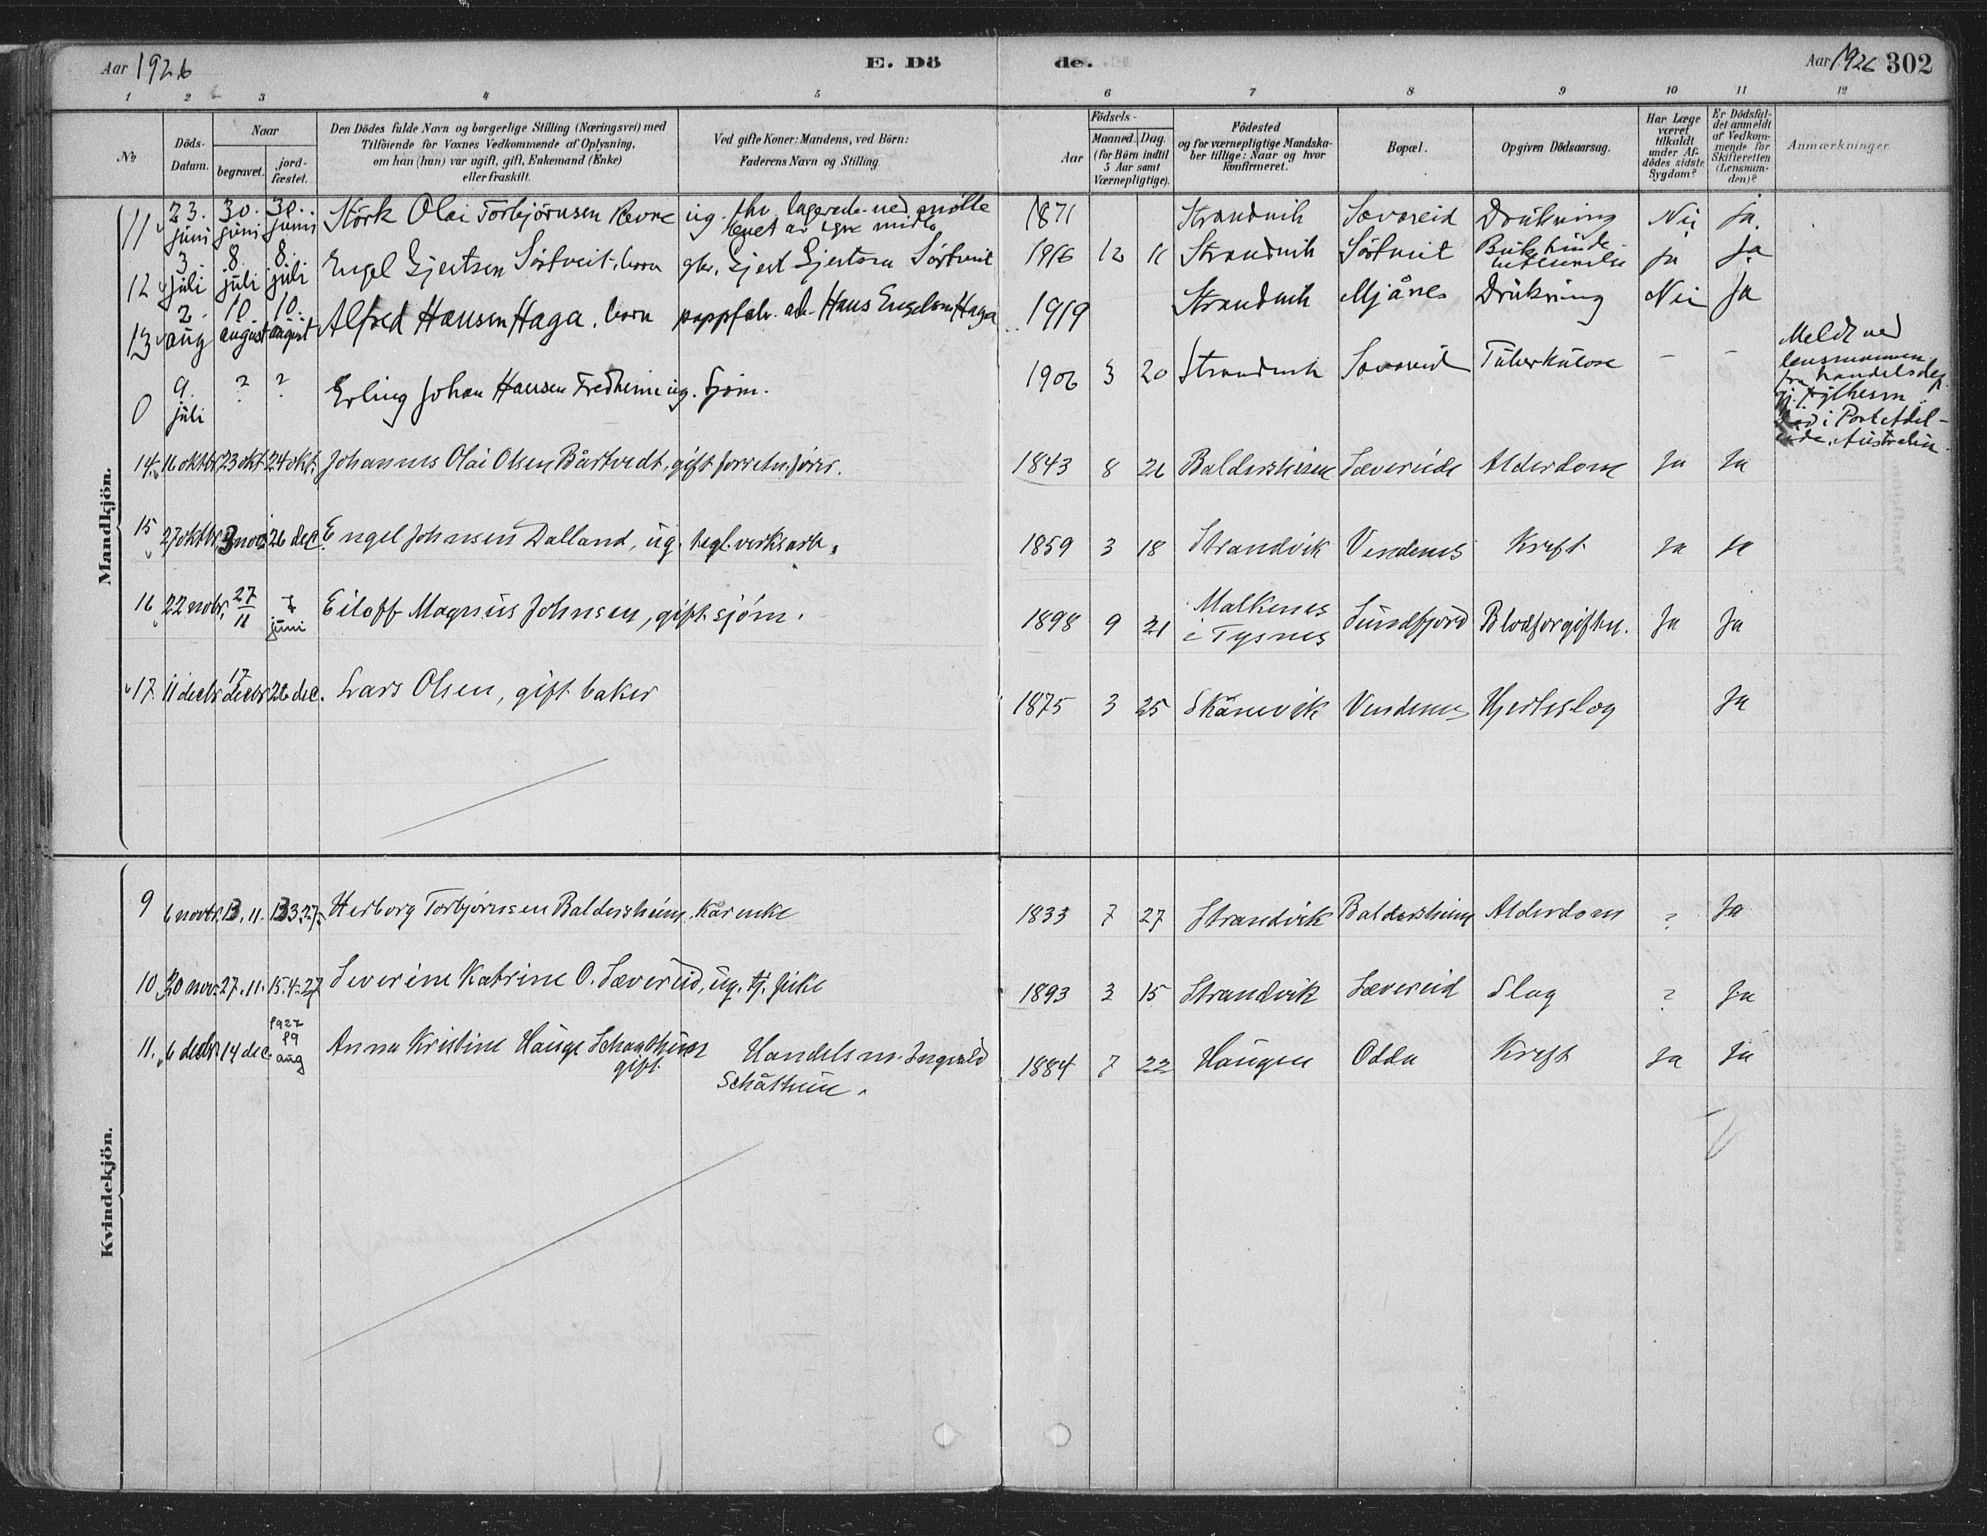 Aar 1926
E. Dö
de.
Aar 1926 302
1 2 3 4 5 6 7 8 9 10 11 12
No
Döds-Datum.
Naar
begravet.
jord-fæstet.
Den Dödes fulde Navn og borgerlige Stilling (Næringsvei) med
Tilföiende for Voxnes Vedkommende af Oplysning,
om han (hun) var ugift, gift, Enkemand (Enke)
eller fraskilt.
Ved gifte Koner: Mandens, ved Börn:
Faderens Navn og Stilling.
Födsels-
Aar
Maaned. Dag.
(for Börn indtil
5 Aar samt
Værnepligtige).
Födested
og for værnepligtige Mandska-
ber tillige: Naar og hvor
konfirmeret.
Bopæl.
Opgiven Dödsaarsag.
Har Læge
været
tilkaldt
under Af-
dödes sidste
Sygdom?
Er Dödsfal-
det anmeldt
af Vedkom-
mende for
Skifteretten
(Lensman-
den)?
Anmærkninger
Mandkjön.
11 23. juni 30. juni 30. juni Störk Olai Torbjörnsen Revne ug. 1871 Strandvik Sævareid Drukning Nei ja.
12 3. juli 8. juli 8. juli Engel Gjertsen Sörtveit, barn gbr. Gjert Gjertsen Sörtveit 1916 12 11 Strandvik Sörtveit ja ja
13 2. aug 10. august 10. august Alfred Hansen Haga, barn pappfabr. arb. Hans Engelsen Haga 1919 Strandvik Mjånes Drukning Nei ja
0 9. juli ? ? Erling Johan Hansen Fredheim ug. sjöm. 1906 3 20 Strandvik Sævareid Tuberkulose - - Meldt ved
lensmannen
fra handelsdep.
död i Port Adel-
aide, Australien.
14 16 oktbr. 23 okt. 24 okt. Johannes Olai Olsen Bårtvedt, gift forretn.förer. 1843 8 26 Baldersheim Sævereide Alderdom Ja Ja
15 27 oktbr. 3 nov. 26 dec. Engel Johnsen Dalland, ug. tegl.verksarb. 1859 3 18 Strandvik Vendenes Kreft Ja Ja
16 22 novbr. 27/11 7 juni Eiloff Magnus Johnsen, gift sjöm. 1898 9 21 Malkenes
i Tysnes Sundfjord Blodforgiftn. Ja Ja
17. 11 decbr. 17 decbr. 26 dec. Lars Olsen, gift baker 1875 3 25 Skånevik Vendenes Hjerteslag Ja
Kvindekjön.
9 6 novbr. 13. 11. 13 3. 27. Herborg Torbjörnsen Baldersheim, kårenke 1833 7 27 Strandvik Baldersheim Alderdom ? Ja
10 20 nov. 27. 11. 15. 4. 27 Severine Katrine O. Sævereid, ug. tj. pike 1893 3 15 Strandvik Sævereid Slag ? Ja
11. 6 decbr. 14 dec. 1927 19 aug Anna Kristine Hauge Schaathun
gift Handelsm. Ingvald
Schåthun. 1884 7 22 Haugen Odda Kreft Ja Ja